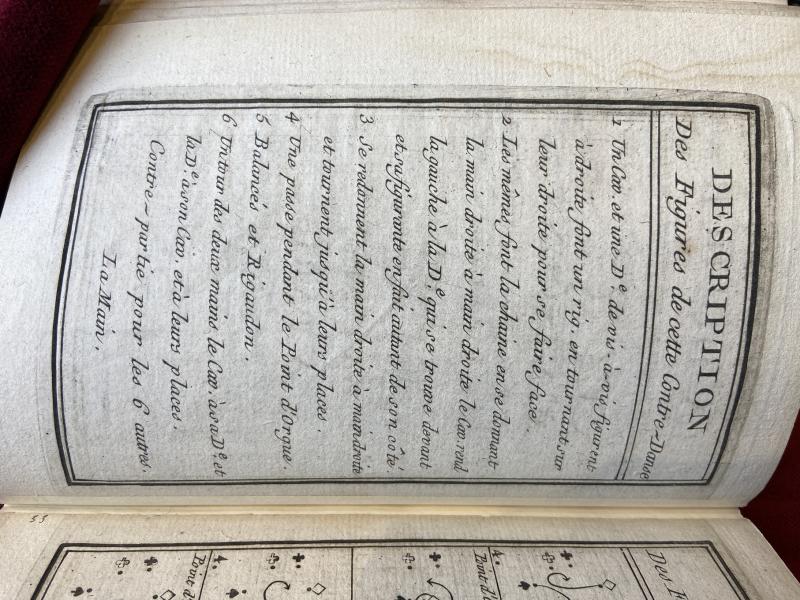 DESCRIPTION
Des Figures de cette Contre-Danse
1 Un Cav. et une De. de vis-à-vis figurent
à droite font un rig. en tournant sur
leur droite pour se faire face.
2 Les mêmes font la chaine en se donnant
la main droite à main droite le Cav. rend
la gauche à la De. qui se trouve devant
et sa figurante en fait autant de son côté
3 Se redonnent la main droite à main droite
et tournent jusqu'à leurs places.
4 Une passe pendant le Point d'Orgue.
5 Balancés et Rigaudon.
6 Un tour des deux mains le Cav. à sa De. et
la De. à son Cav. et à leurs places.
Contre-partie pour les 6 autres.
La Main.
53
Des F
4.
Point d'
4.
Point d'